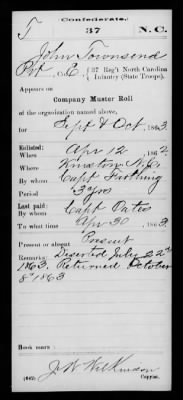 Confederate.
T 37 N.C.
John Townsend
Pvt, Co. E, 37 Reg't North Carolina
Infantry (State Troops).
Appears on
Company Muster Roll
of the organization named above,
for Sept & Oct, 1863.
Enlisted:
When Apr 12, 1862.
Where Kinston N.C.
By whom Capt Farthing
Period 3 yrs
Last paid:
By whom Capt Oates
To what time Apr 30, 1863.
Present or absent Present
Remarks: Deserted July 22d
1863. Returned October
8th 1863
Book mark:
J W Wilkinson
(642) Copyist.